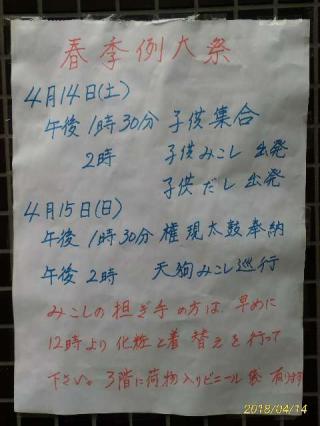 春季例大祭
4月14日(土)
午後1時30分 子供集合
2時 子供みこし 出発
子供だし 出発
4月15日(日)
午後1時30分 権現太鼓奉納
午後2時 天狗みこし巡行
みこしの担ぎ手の方は、早めに
12時より化粧と着替えを行って
下さい。3階に荷物入りビニール袋有ります
2018/04/14